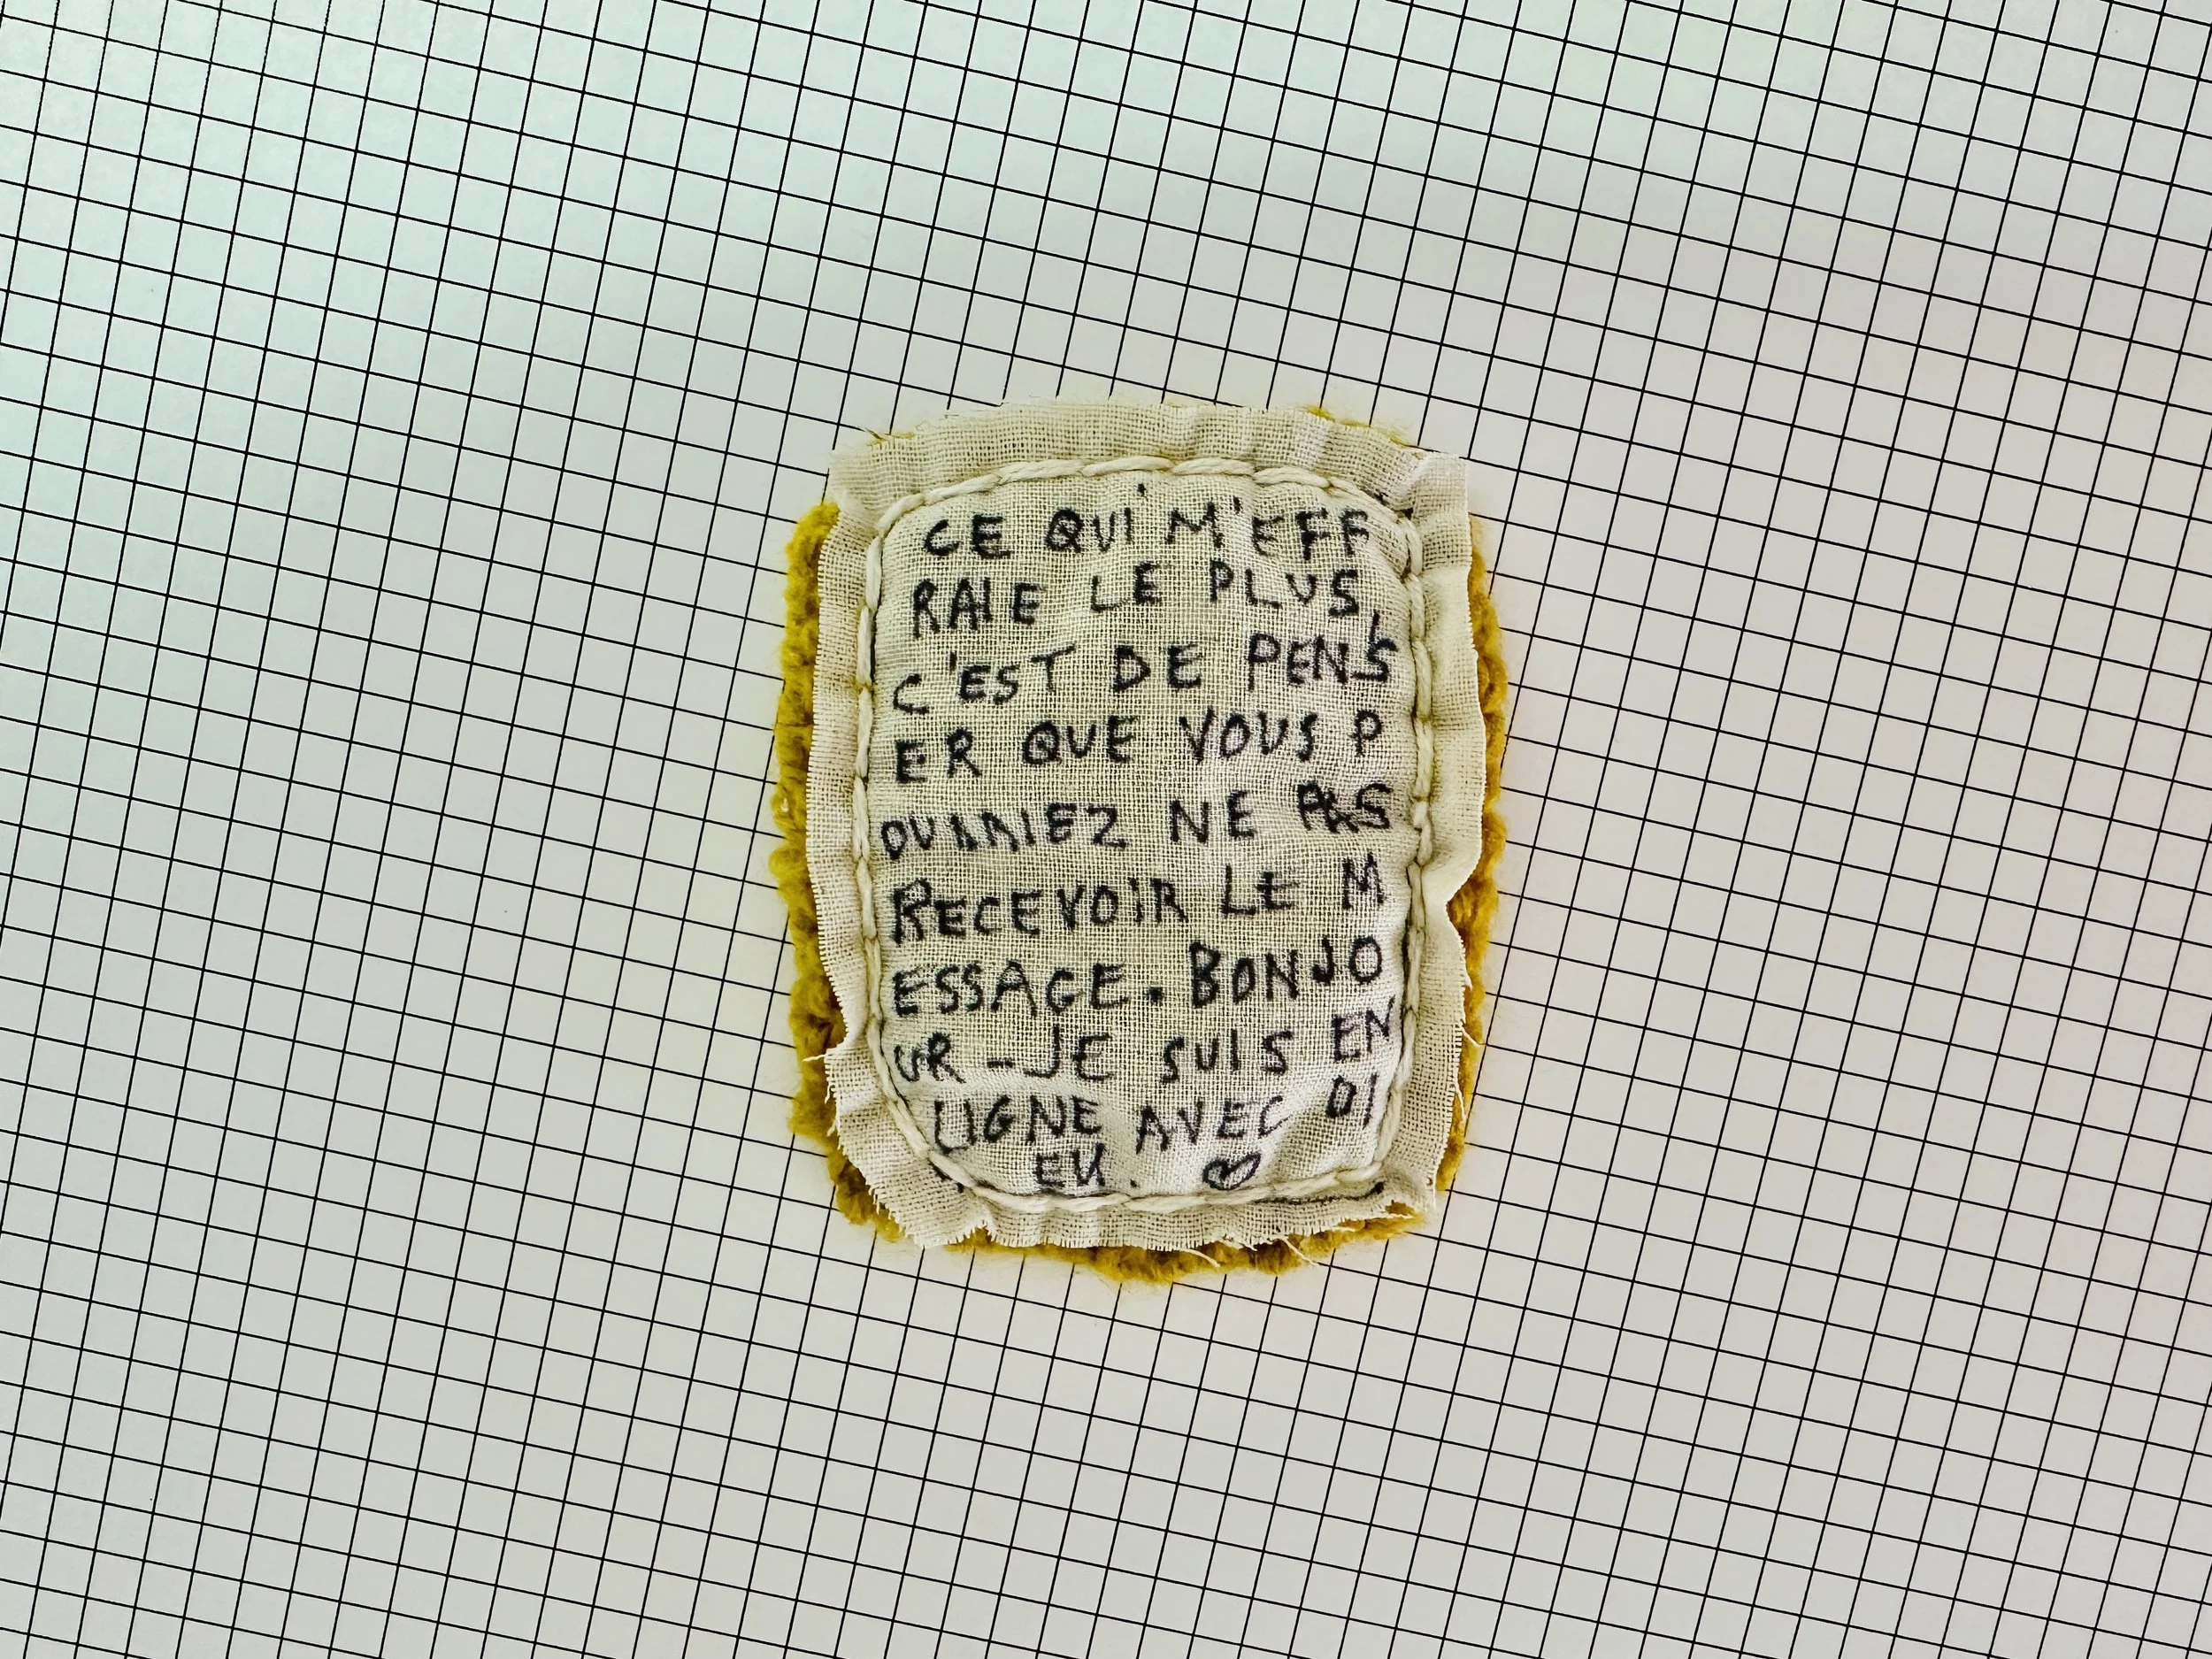 CE QUI M'EFF
RAIE LE PLUS,
C'EST DE PENS
ER QUE VOUS P
OURRIEZ NE PAS
RECEVOIR LE M
ESSAGE. BONJO
UR - JE SUIS EN
LIGNE AVEC DI
EU. ♡